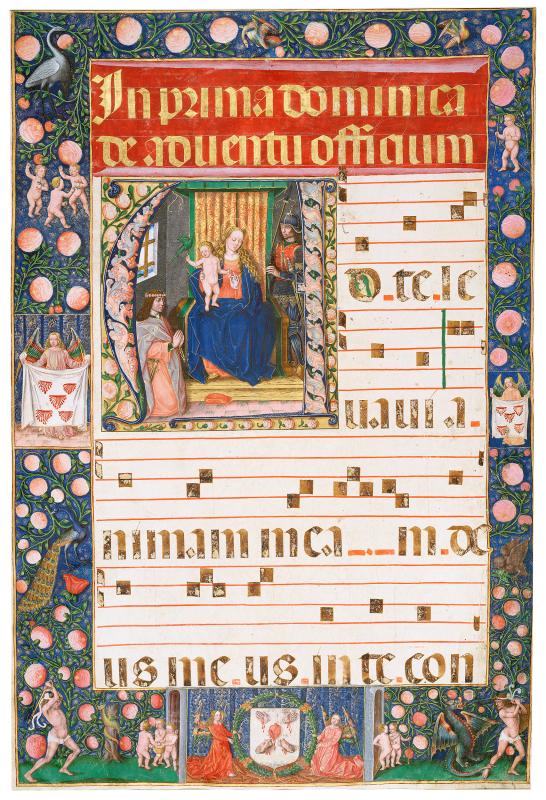 In prima dominica
de aduentu officium
AD.te.le
uaui.a.
nimam mea__m.de
us me.us.in te.con